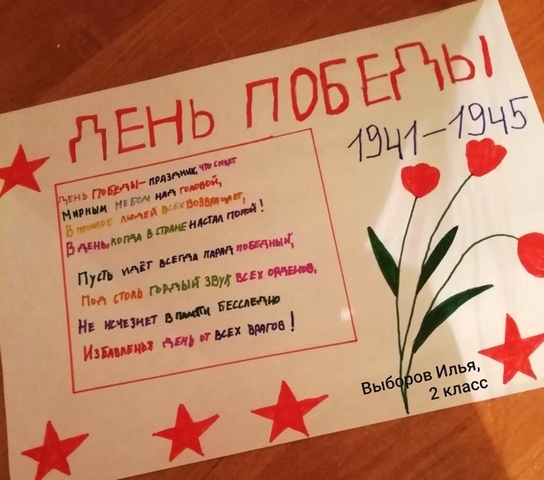 ДЕНЬ ПОБЕДЫ
1941-1945
ДЕНЬ ПОБЕДЫ - ПРАЗДНИК, ЧТО СИЯЕТ
МИРНЫМ НЕБОМ НАД ГОЛОВОЙ,
В ПРОШЛОЕ ЛЮДЕЙ ВСЕХ ВОЗВРАЩАЕТ,
В ДЕНЬ, КОГДА В СТРАНЕ НАСТАЛ ПОКОЙ!
ПУСТЬ ИДЁТ ВСЕГДА ПАРАД ПОБЕДНЫЙ,
ПОД СТОЛЬ ГОРДЫЙ ЗВУК ВСЕХ ОРДЕНОВ,
НЕ ИСЧЕЗНЕТ В ПАМЯТИ БЕССЛЕДНО
ИЗБАВЛЕНЬЯ ДЕНЬ ОТ ВСЕХ ВРАГОВ!
Выборов Илья,
2 класс